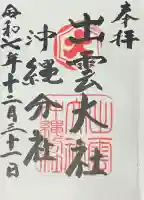 奉拝
出雲大社
沖縄分社
令和七年十二月三十一日